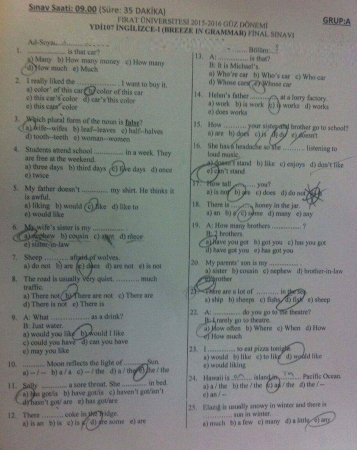 Sınav Saati: 09.00 (Süre: 35 DAKİKA)
FIRAT ÜNİVERSİTESİ 2015-2016 GÜZ DÖNEMİ
GRUP:A
YDİ107 İNGİLİZCE-I (BREEZE IN GRAMMAR) FİNAL SINAVI
Adı-Soyadı:
Bölümü:
1. ............ is that car?
a) Many b) How many money c) How many
d) How much e) Much
2. I really liked the ............ I want to buy it.
a) color' of this car b) color of this car
c) this car's color d) car's this color
e) this car' color
3. Which plural form of the noun is false?
a) wife--wifes b) leaf--leaves c) half--halves
d) tooth--teeth e) woman--women
4. Students attend school ............ in a week. They
are free at the weekend.
a) three days b) third days c) five days d) once
e) twice
5. My father doesn't ............ my shirt. He thinks it
is awful.
a) liking b) would c) like d) like to
e) would like
6. My wife's sister is my ............
a) nephew b) cousin c) aunt d) niece
e) sister-in-law
7. Sheep ............ afraid of wolves.
a) do not b) are c) does d) are not e) is not
8. The road is usually very quiet. ............ much
traffic.
a) There not b) There are not c) There are
d) There is not e) There is
9. A: What ............ as a drink?
B: Just water.
a) would you like b) would I like
c) could you have d) can you have
e) may you like
10. ............ Moon reflects the light of ............ Sun.
a) -- / -- b) a / a c) -- / the d) a / the e) the / the
11. Sally ............ a sore throat. She ............ in bed.
a) has got/is b) have got/is c) haven't got/isn't
d) hasn't got/ are e) has got/are
12. There ............ coke in the fridge.
a) is an b) is c) is a d) are some e) are
13. A: ............ is that?
B: It is Michael's.
a) Who're car b) Who's car c) Who car
d) Whose car e) Whose car
14. Helen's father ............ at a lorry factory.
a) work b) is work c) is works d) works
e) does works
15. How ............ your sister and brother go to school?
a) are b) does c) is d) do e) doesn't
16. She has a headache so she ............ listening to
loud music.
a) doesn't stand b) like c) enjoys d) don't like
e) can't stand
17. How tall ............ you?
a) is not b) are c) does d) do not
18. There is ............ honey in the jar.
a) an b) a c) some d) many e) any
19. A: How many brothers ............ ?
B: 2 brothers.
a) Have you got b) got you c) has you got
d) have got you e) has got you
20. My parents' son is my ............
a) sister b) cousin c) nephew d) brother-in-law
e) brother
21. There are a lot of ............ in the sea.
a) ship b) sheeps c) fishs d) fish e) sheep
22. A: ............ do you go to the theatre?
B: I rarely go to theatre.
a) How often b) Where c) When d) How
e) How much
23. I ............ to eat pizza tonight.
a) would b) like c) to like d) would like
e) would liking
24. Hawaii is ............ island in ............ Pacific Ocean.
a) a / the b) the / the c) an / the d) the / --
e) an / --
25. Elazığ is usually snowy in winter and there is
............ sun in winter.
a) much b) a few c) many d) a little e) any